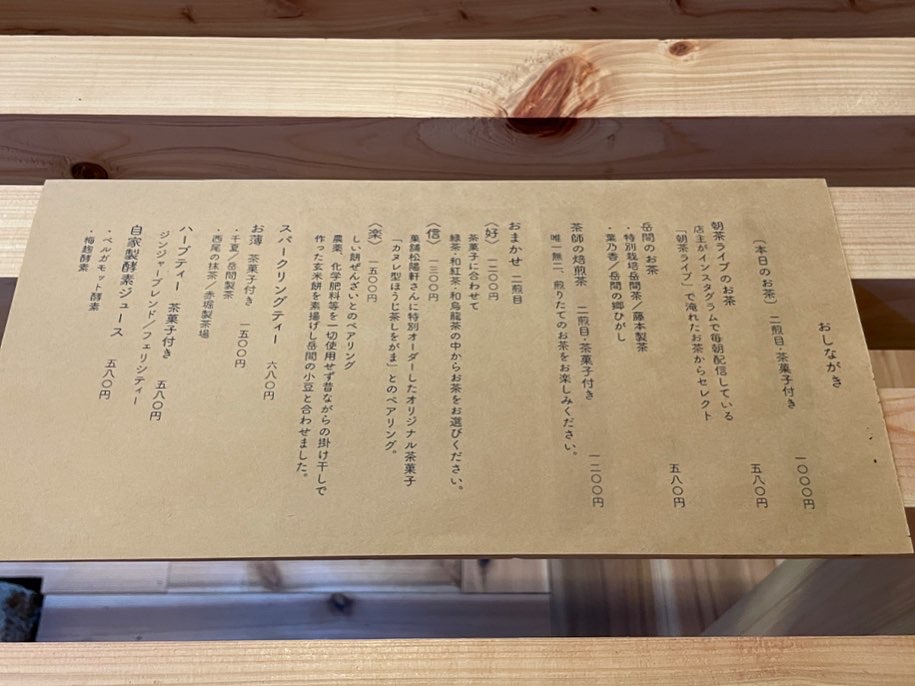 おしながき
(本日のお茶) 二煎目・茶菓子付き 一〇〇〇円
朝茶ライブのお茶 五八〇円
店主がインスタグラムで毎朝配信している
「朝茶ライブ」で淹れたお茶からセレクト
岳間のお茶 五八〇円
・特別栽培岳間茶/藤本製茶
・葉乃香/岳間の郷ひがし
茶師の焙煎茶 二煎目・茶菓子付き 一二〇〇円
唯一無二、煎りたてのお茶をお楽しみください。
おまかせ 二煎目
〈好〉 一二〇〇円
茶菓子に合わせて
緑茶・和紅茶・和烏龍茶の中からお茶をお選びください。
〈信〉 一三〇〇円
菓舗松陽軒さんに特別オーダーしたオリジナル茶菓子
「カヌレ型ほうじ茶しをがま」とのペアリング。
〈楽〉 一五〇〇円
しい餅ぜんざいとのペアリング
農薬、化学肥料等を一切使用せず昔ながらの掛け干しで
作った玄米餅を素揚げし岳間の小豆と合わせました。
スパークリングティー 六八〇円
お薄 茶菓子付き 一五〇〇円
・千夏/岳間製茶
・西尾の抹茶/赤堀製茶場
ハーブティー 茶菓子付き 五八〇円
ジンジャーブレンド/フェリシティー
自家製酵素ジュース 五八〇円
・ベルガモット酵素
・梅麹酵素